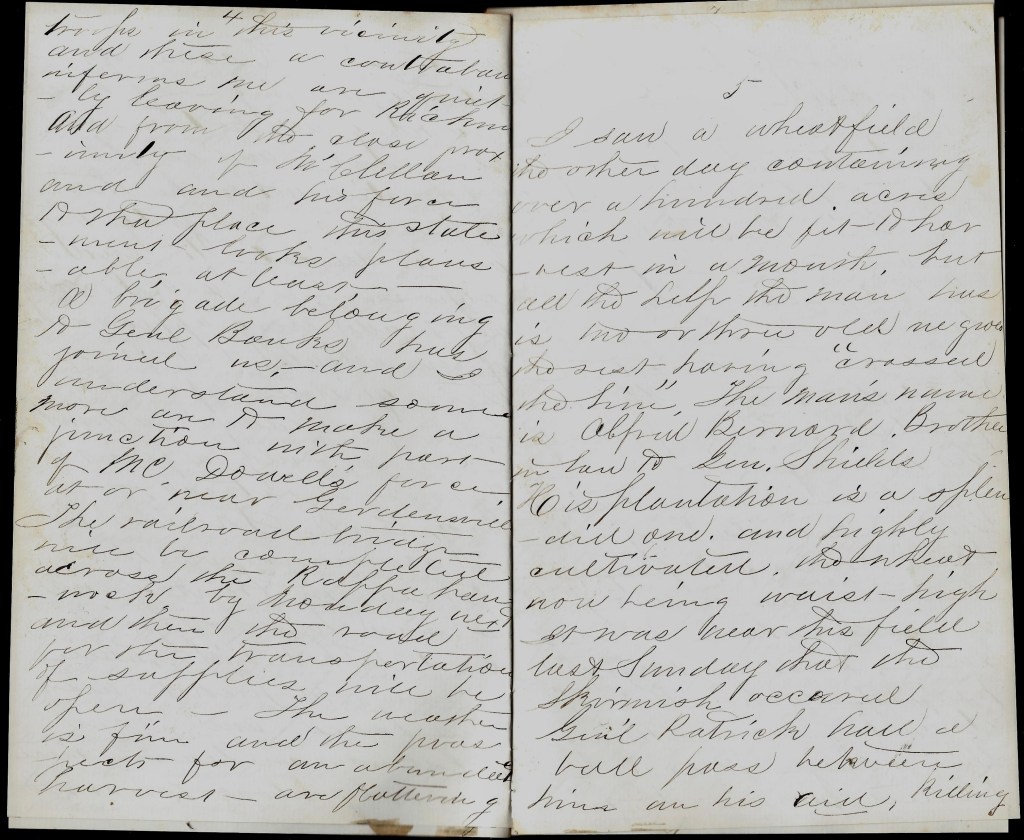 4
troops in this vicinity
and these a contraban
informs me are quiet-
-ly leaving for Richm
and from the close prox
-imity of McClellan
and and his force
to that place this state
-ment looks plaus
-able, at least —
A brigade belonging
to Genl Banks has
joined us, — and I
understand some
more are to make a
junction with part
of McDowell's force
at or near Gordonsvill
The railroad bridge
will be completed
across the Rappahan-
-nock by Monday next
and then the road
for the transportation
of supplies will be
open — The weather
is fine and the pros
pects for an abundent
harvest — are flattering
5
I saw a wheatfield
the other day containing
over a hundred acres
which will be fit to har
-vest in a month, but
all the help the man has
is two or three old negroes
the rest having "crossed
the line", The man's name
is Alfred Bernard, Brother
in law to Gen. Shields
His plantation is a splen
-did one, and highly
cultivated, the wheat
now being waist-high
It was near this field
last Sunday that the
Skirmish occured
Gen'l Patrick had a
ball pass between
him an his aid, Killing